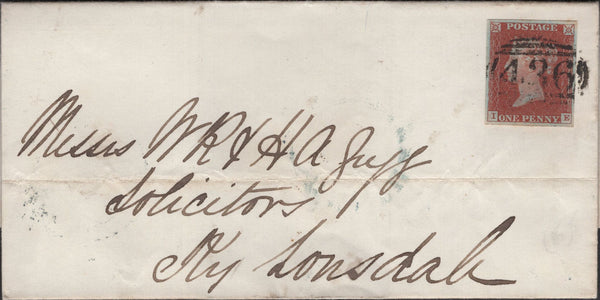 POSTAGE
436
I E
ONE PENNY
Messrs W R & H A Gregg
Solicitors
Kby Lonsdale